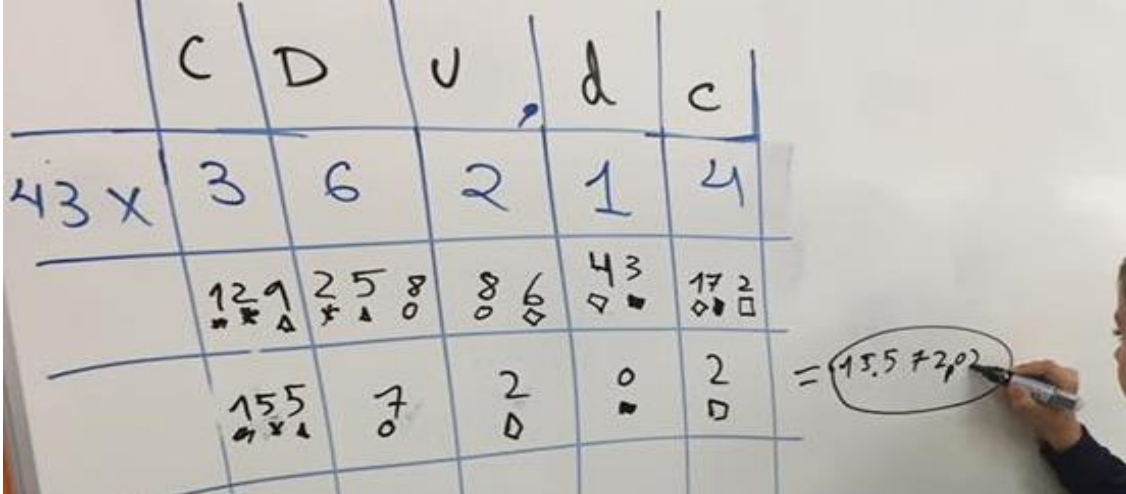 C D U, d c
43 x 3 6 2 1 4
129 258 86 43 172
155 7 2 0 2 = 15.572,02